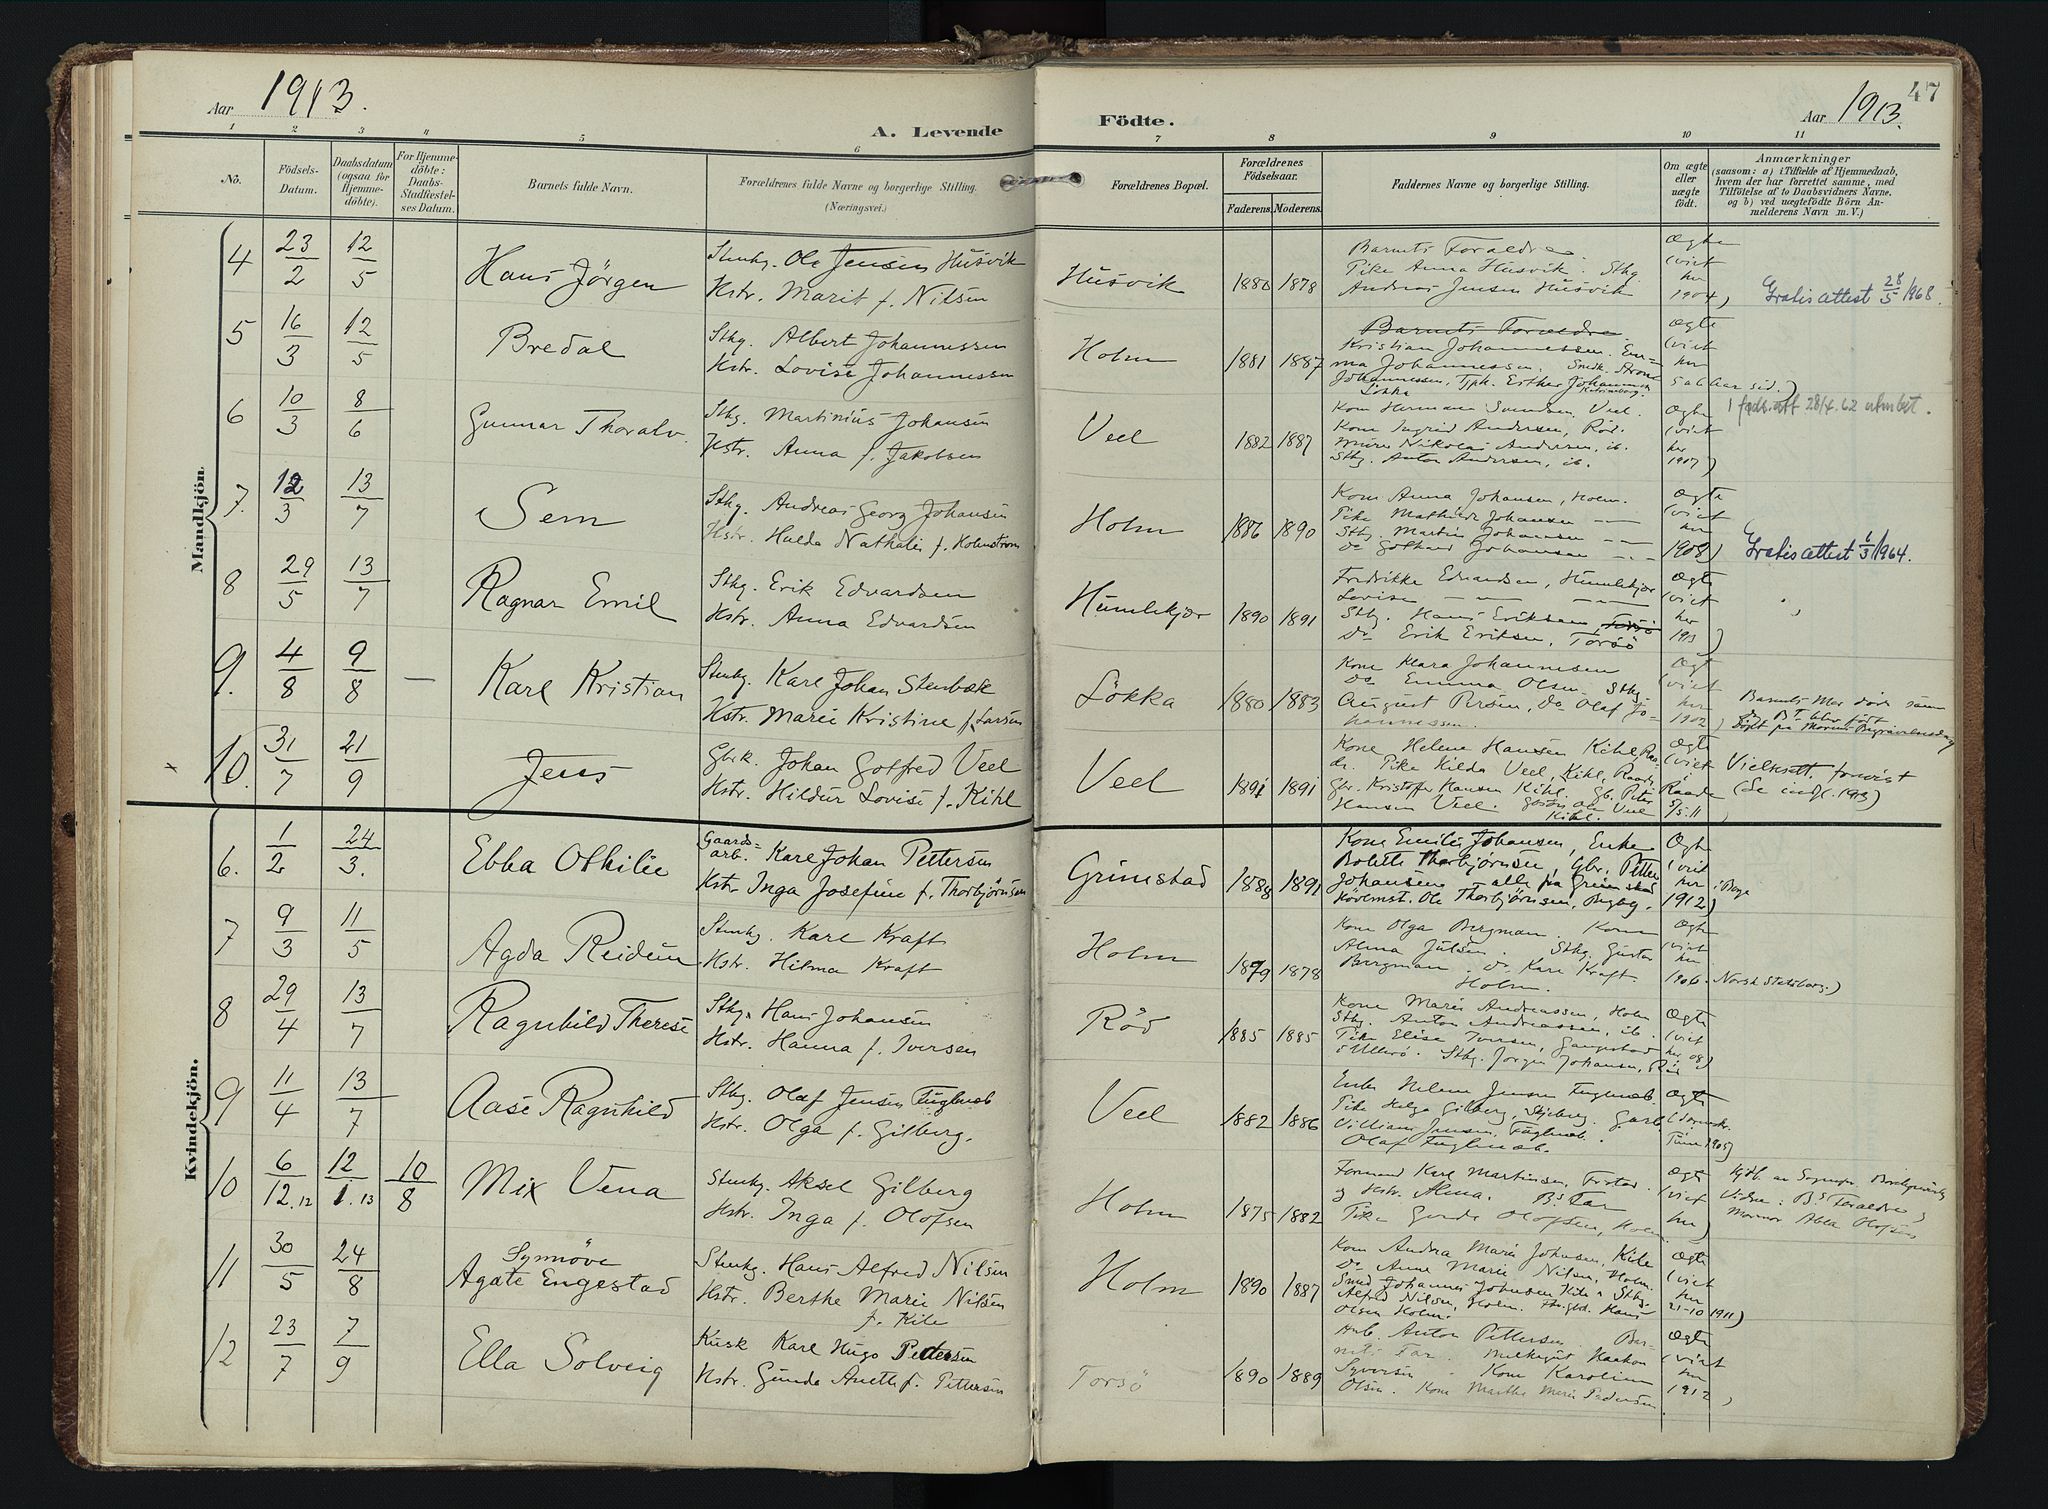 Aar 1913.
A. Levende Födte.
Aar 1913.
47
1 2 3 4 5 6 7 8 9 10 11
No.
Födsels-Datum.
Daabsdatum (ogsaa for Hjemmedöbte).
For Hjemmedöbte: Daabs-Stadfæstelses Datum.
Barnets fulde Navn.
Forældrenes fulde Navne og borgerlige Stilling. (Næringsvei.)
Forældrenes Bopæl.
Forældrenes Födselsaar.
Faderens. Moderens.
Faddernes Navne og borgerlige Stilling.
Om ægte eller uægte födt.
Anmærkninger
(saasom: a) i Tilfælde af Hjemmedaab,
hvem der har forrettet samme, med
Tilföielse af to Daabsvidners Navne,
og b) ved uægtefödte Börn Anmelderens Navn m. V.)
Mandkjön.
4 23/2 12/5 Hans Jörgen
Stenhg. Ole Jensen Husvik
Hstr. Marit f. Nilsen
Husvik 1880 1878
Barnets Forældre.
Pike Anna Husvik. Sthg.
Andreas Jensen Husvik
Ægte (viet her 1904)
Gratis attest 28/5 1968.
5 16/3 12/5 Bredal
Sthg. Albert Johannessen
Hstr. Lovise Johannessen
Holm 1881 1887
Barnets Forældre.
Kristian Johannessen. Em-
ma Johannessen. Smdk.
Johannessen, Esther Johannesen
Løkka
ægte (viet her 5 a 6 Aar sid.)
6 10/3 8/6 Gunnar Thoralv.
Sthg. Martinius Johansen
Hstr. Anna f. Jakobsen
Veel 1882 1887
Kone Hermana Svendsen, Veel.
Kone Ingrid Andersen, Röd.
Murer Nikolai Andersen, ib.
Sthg. Anton Andersen, ib.
Ægte (viet her 1907)
föds.att 28/4.62 utmbet.
7. 12/3 13/7 Sem
Sthg. Andreas Georg Johansen
Hstr. Hulda Nathalie f. Holmström
Holm 1886 1890
Kone Anna Johansen, Holm.
Pike Mathilde Johansen — —
Sthg. Martin Johansen — —
do Gothard Johansen — —
Ægte (viet her 1908)
Gratis attest 6/3 1964.
8 29/5 13/7 Ragnar Emil
Sthg. Erik Edvardsen
Hstr. Anna Edvardsen
Humlekjær 1890 1891
Fredrikke Edvardsen, Humlekjær
Lovise — — —
Sthg. Hans Eriksen, Torsö
Do Erik Eriksen, Torsö
Ægte (viet her 1913)
9. 4/8 9/8 — Karl Kristian
Stenhg. Karl Johan Stenbæk
Hstr. Marie Kristine f. Larsen
Lökka 1880 1883
Kone Klara Johannesen
do Emma Olsen. Sthg.
August Persen, do Olaf Jo-
hannessen.
Ægt (viet her 1902)
Barnets Mor döde samme
dag B. blev födt
Döpt på Morens Begravelsesdag
10. 31/7 21/9 Jens
Gbrk. Johan Gotfred Veel
Hstr. Hildur Lovise f. Kihl
Veel 1891 1891
Kone Helene Hansen Kihl, Raa-
de. Pike Hilda Veel, Kihl, Raade
Gbr. Kristoffer Hansen Kihl. Gb. Peter
Hansen Veel. Veel
Kihl.
Ægte (viet Raade 5/5.11
Vielsesatt. forevist
(Se indfl. 1913)
Kvindekjön.
6. 1/2 24/3. Ebba Othilie
Gaards-arb. Karl Johan Pettersen
Hstr Inga Josefine f. Thorbjörnsen
Grimstad 1888 1891
Kone Emilie Johansen, Enke
Bolette Thorbjörnsen, Gbr. Petter
Johansen alle fra Grimstad
Hövlmst. Ole Thorbjörnsen, Rygby.
Ægte (viet her 1912)
7 9/3 11/5 Agda Reidun
Stenhg. Karl Kraft
Hstr. Hilma Kraft
Holm 1879 1878
Kone Olga Bergman. Kone
Alma Julsen. Sthg. Gustav
Bergman. do Karl Kraft.
Holm.
Ægte (viet her 1906. Norsk Statsborg.)
8 29/4 13/7 Ragnhild Therese
Sthg. Hans Johansen
Hstr. Hanna f. Iversen
Röd 1885 1885
Kone Marie Andreassen, Holm
Sthg. Anton Andreassen, ib.
Pike Elise Iversen, Gangestad
i Ullerö. Sthg. Jörgen Johansen, Röd
Ægte (viet her og)
9 11/4 13/7 Aase Ragnhild
Sthg. Olaf Jensen Fuglenæb
Hstr. Olga f. Gilberg.
Veel 1882 1886
Enke Helene Jensen Fuglenæb.
Pike Helga Gilberg, Skjeberg. Garb.
William Jensen, Fuglenæb.
Olaf Fuglenæb.
Ægte (i Tune 1905)
10 6/12.12 12/1.13 10/8 Mix Vena
Stenhg. Aksel Gilberg
Hstr. Inga f. Olofsen
Holm 1875 1882
Formand Karl Martinsen, Fr.stad.
og Hstr. Alma. Bs Far
Pike Gerda Olofsen, Holm
Ægte (viet her)
Hjdb. av Sognepr.
Vidner: Bs Forældre og
Mormor Abla Olofsen
11 30/5 24/8 Synnöve
Agate Engestad
Stenhg. Hans Alfred Nilsen
Hstr. Berthe Marie Nilsen
f. Kile
Holm 1890 1887
Kone Andrea Marie Johnsen, Kile
Do Anne Marie Nilsen, Holm.
Smed Johannes Johnsen Kile. Sthg.
Alfred Nilsen, Holm. Hans
Olsen Holm.
Ægte (viet her 21-10 1911)
12 23/7 7/9 Ella Solveig
Kusk Karl Hugo Pettersen
Hstr. Gunda Aneth f. Pettersen
Torsö 1890 1889
Anton Pettersen. Bar-
nets Far. Melkekjut Haakon
Syversen. Kone Karoline
Olsen. Kone Marthe Marie Pedersen.
Ægte (viet her 1912)